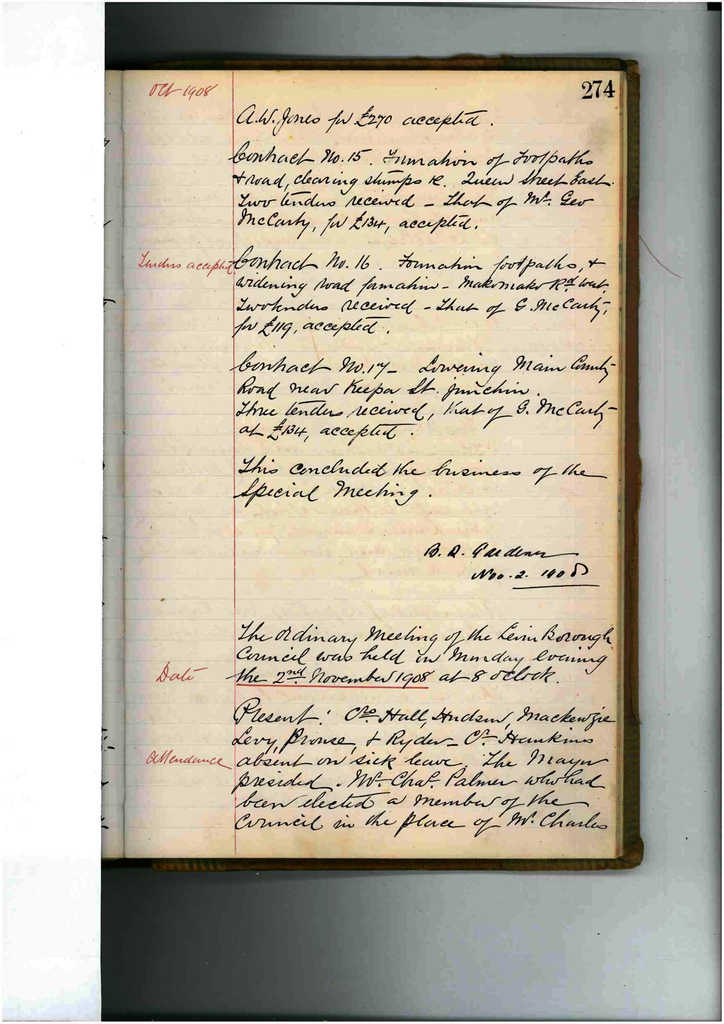 Oct 1908
274
A.W. Jones for £270 accepted.
Contract No. 15. Formation of Footpaths
+ road, clearing stumps &c. Queen Street East.
Two tenders received - That of Mr. Geo
McCarty, for £134, accepted.
Tenders accepted
Contract No. 16. Formation footpaths, +
widening road formation - Makomako Rd. West.
Two tenders received - That of G. McCarty,
for £119, accepted.
Contract No. 17 - Lowering Main County
Road near Keepa St. junction.
Three tenders received, that of G. McCarty
at £134, accepted.
This concluded the business of the
Special Meeting.
B. R. Gardener
Nov. 2. 1908
The Ordinary Meeting of the Levin Borough
Council was held on Monday evening
Date
the 2nd November 1908 at 8 oclock.
Present: Crs Hall, Hudson, Mackenzie
Levy, Prouse, + Ryder - Cr. Hankins
Attendance
absent on sick leave. The Mayor
presided. Mr. Chas. Palmer who had
been elected a member of the
Council in the place of Mr. Charles